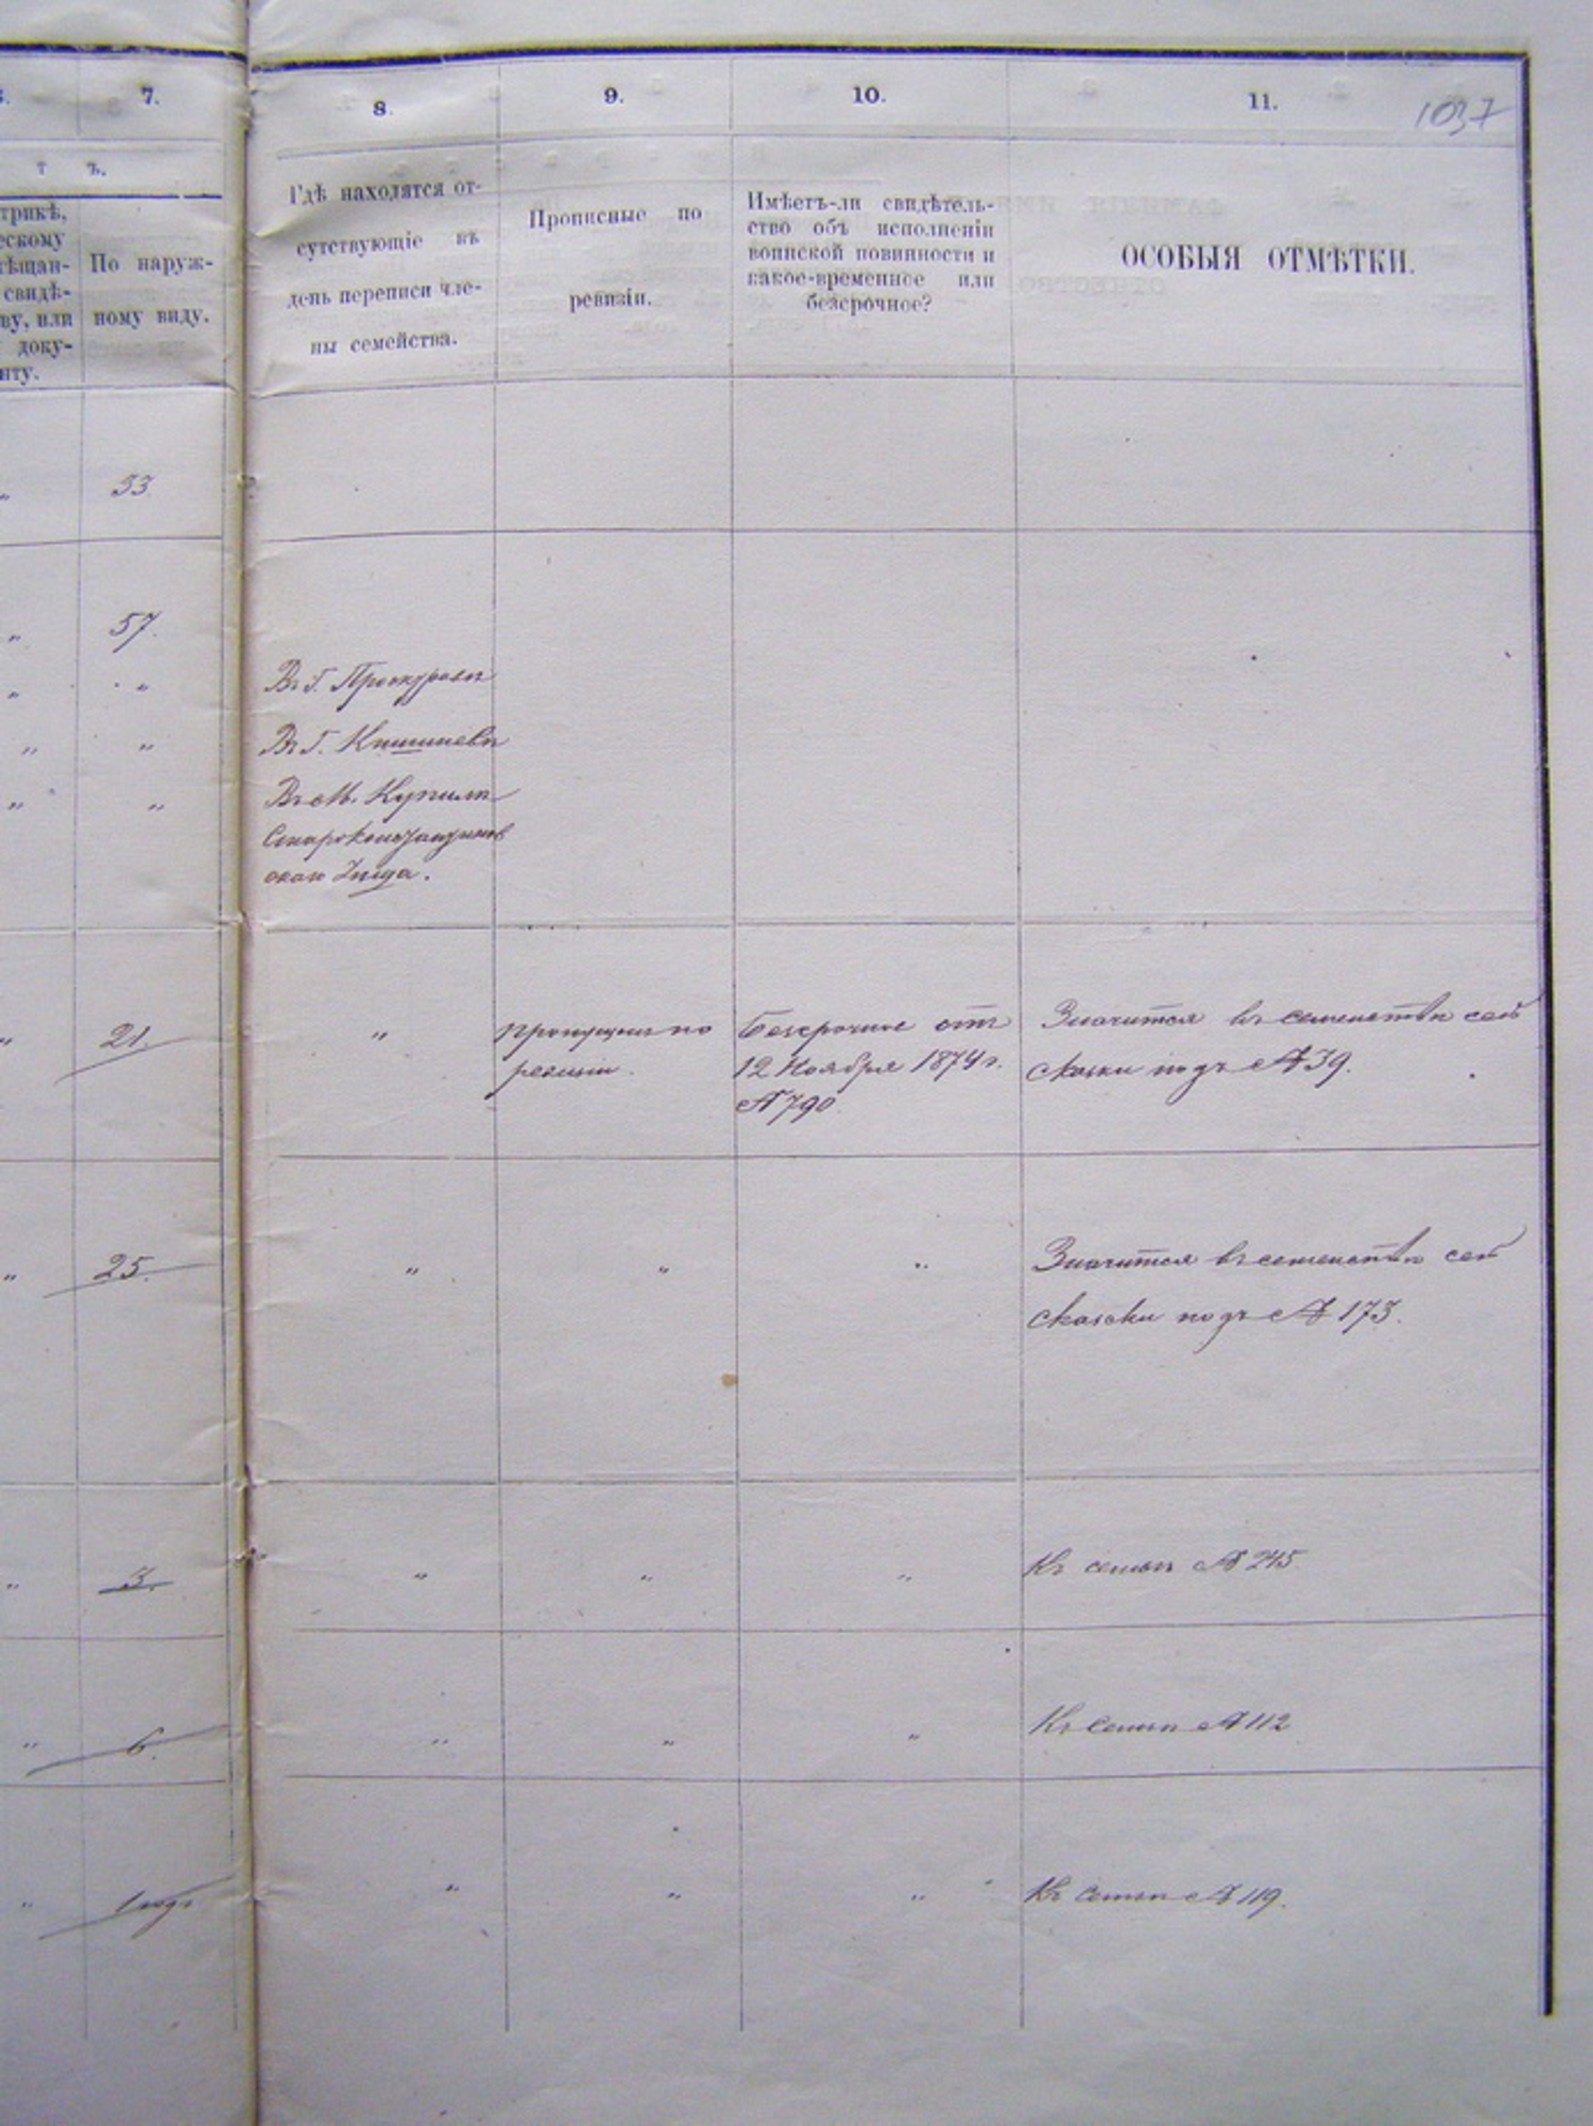 7.
8.
9.
10.
11.
1037
т ъ.
трикѣ,
ескому
свидѣ-
ву, или
доку-
нту.
По наруж-
ному виду.
Гдѣ находятся от-
сутствующіе въ
день переписи чле-
ны семейства.
Прописные по
ревизіи.
Имѣетъ-ли свидѣтель-
ство объ исполненіи
воинской повинности и
какое-временное или
безсрочное?
ОСОБЫЯ ОТМѢТКИ.
" 53
" 57.
" " Въ Г. Проскуровѣ
" " Въ Г. Кишиневѣ
" " Въ М. Купилѣ
Староконстантинов
скаго уѣзда.
" 21. " Пропущенъ по
ревизіи.
Безсрочное отъ
12 Ноября 1874 г.
№ 790
Значится въ семействѣ сей
сказки подъ № 39.
" 25. " " "
Значится въ семействѣ сей
сказки подъ № 173.
" 3. " " " Къ семьѣ № 245
" 6. " " " Къ семьѣ № 112
" 1 годъ " " " Къ семьѣ № 119.